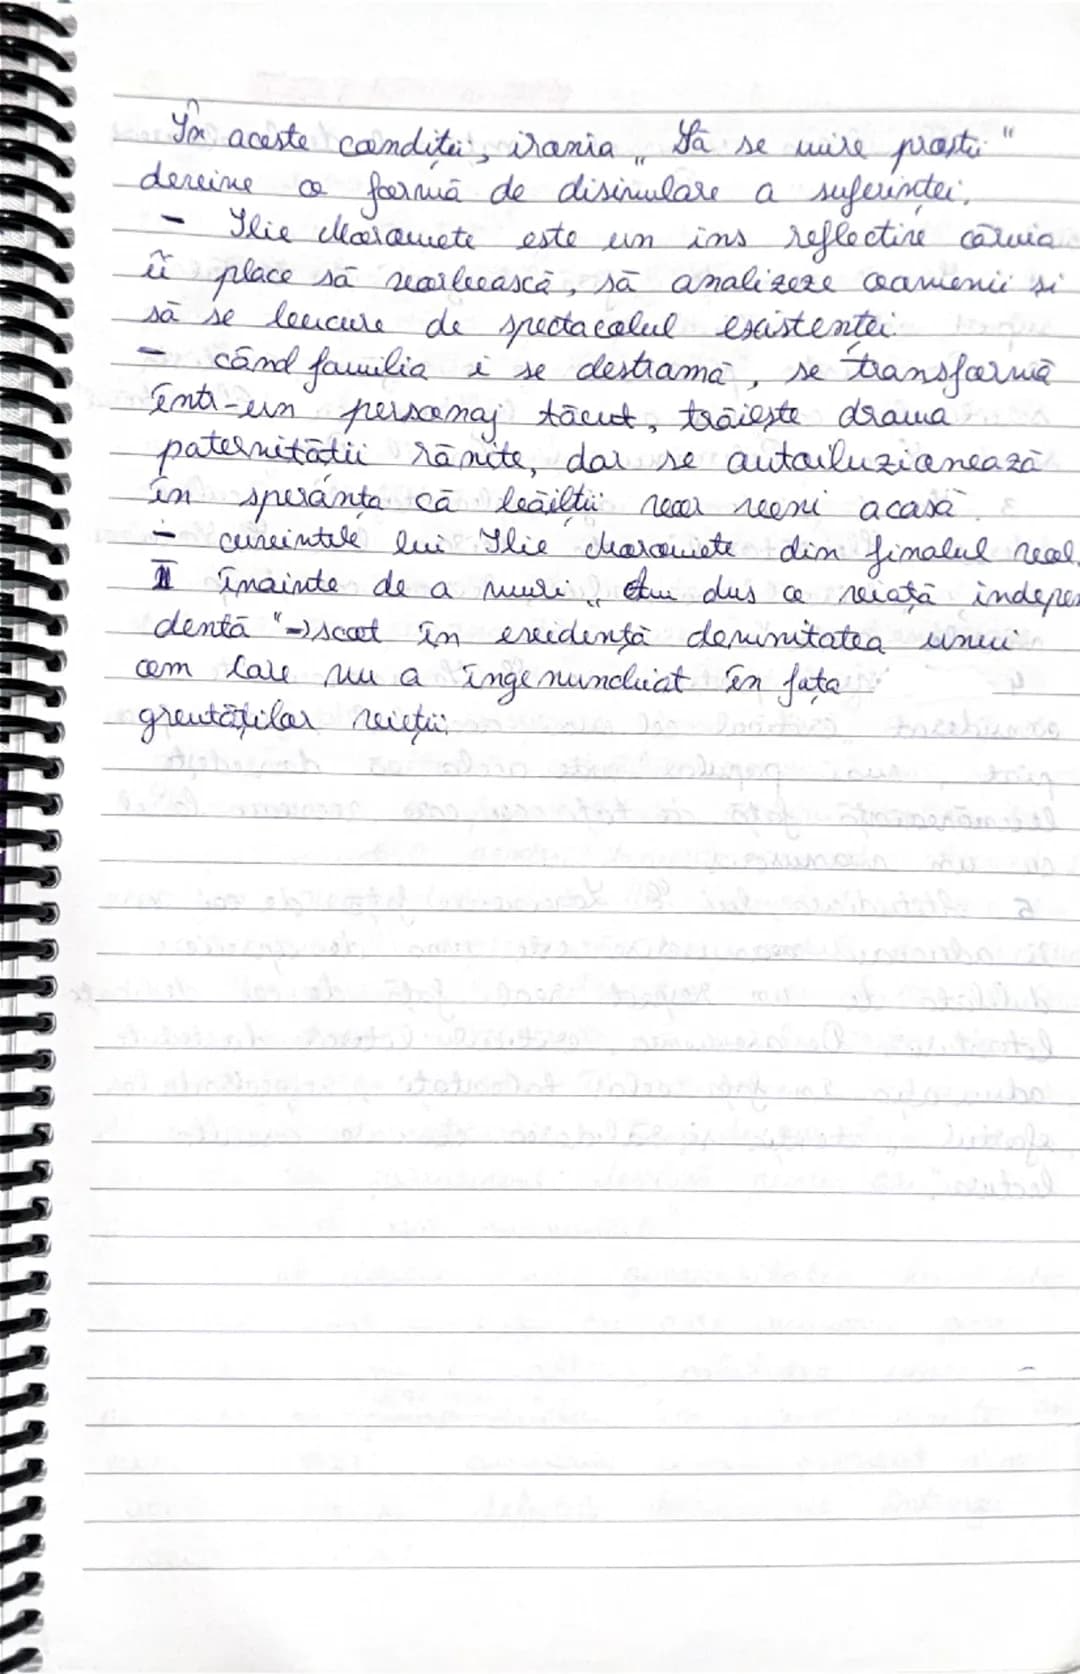 În aceste condiții, ironia „Să se mire proștii"
devine o formă de disimulare a suferinței.
- Ilie Moromete este un ins reflectiv căruia
îi place să vorbească, să analizeze oamenii și
să se bucure de spectacolul existenței.
- când familia i se destramă, se transformă
într-un personaj tăcut, trăiește drama
paternității rănite, dar se autoiluzionează
în speranța că băieții vor veni acasă.
- cuvintele lui Ilie Moromete din finalul vol.
II înainte de a muri „Am dus o viață indepen
dentă"→ scot în evidență demnitatea unui
om care nu a îngenunchiat în fața
greutăților vieții.